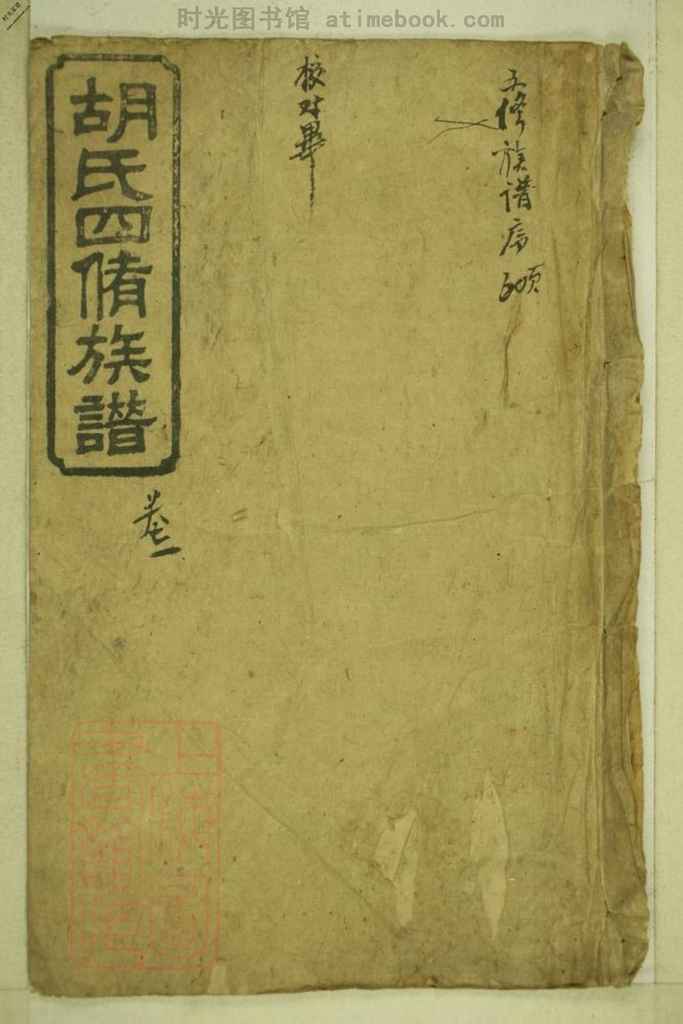 时光图书馆 atimebook.com
五修族谱序
校对畢
胡氏四脩族譜
卷一